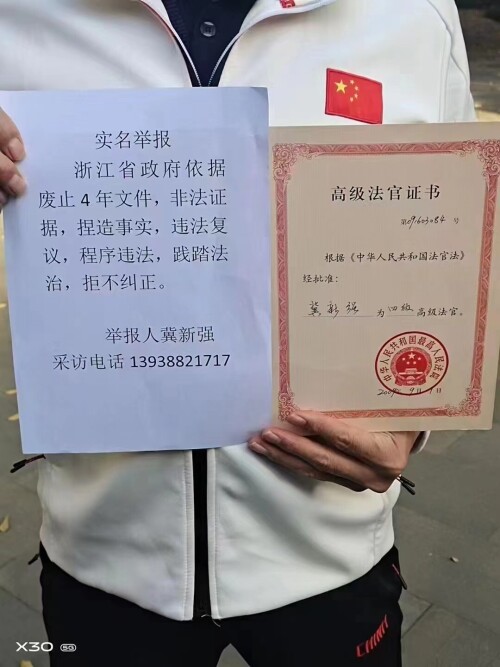 实名举报
浙江省政府依据
废止4年文件，非法证
据，捏造事实，违法复
议，程序违法，践踏法
治，拒不纠正。
举报人冀新强
采访电话 13938821717
高级法官证书
第091603084号
根据《中华人民共和国法官法》
经批准：
冀新强 为 四级 高级法官。
中华人民共和国最高人民法院
CHINA
X30 5G